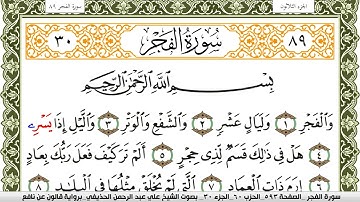 سورة الفجر ٨٩
الجزء الثلاثون
٣٠
سُورَةُ الْفَجْرِ
٨٩
بِسْمِ اللَّهِ الرَّحْمَنِ الرَّحِيمِ
وَالْفَجْرِ ١ وَلَيَالٍ عَشْرٍ ٢ وَالشَّفْعِ وَالْوَتْرِ ٣ وَالَّيْلِ إِذَا يَسْرِۦ
٤ هَلْ فِي ذَٰلِكَ قَسَمٌ لِّذِي حِجْرٍ ٥ أَلَمْ تَرَ كَيْفَ فَعَلَ رَبُّكَ بِعَادٍ
٦ إِرَمَ ذَاتِ الْعِمَادِ ٧ الَّتِي لَمْ يُخْلَقْ مِثْلُهَا فِي الْبِلَٰدِ ٨
سورة الفجر_الصفحة ٥٩٣_الحزب ٦٠_الجزء ٣٠_ بصوت الشيخ علي عبد الرحمن الحذيفي_برواية قالون عن نافع